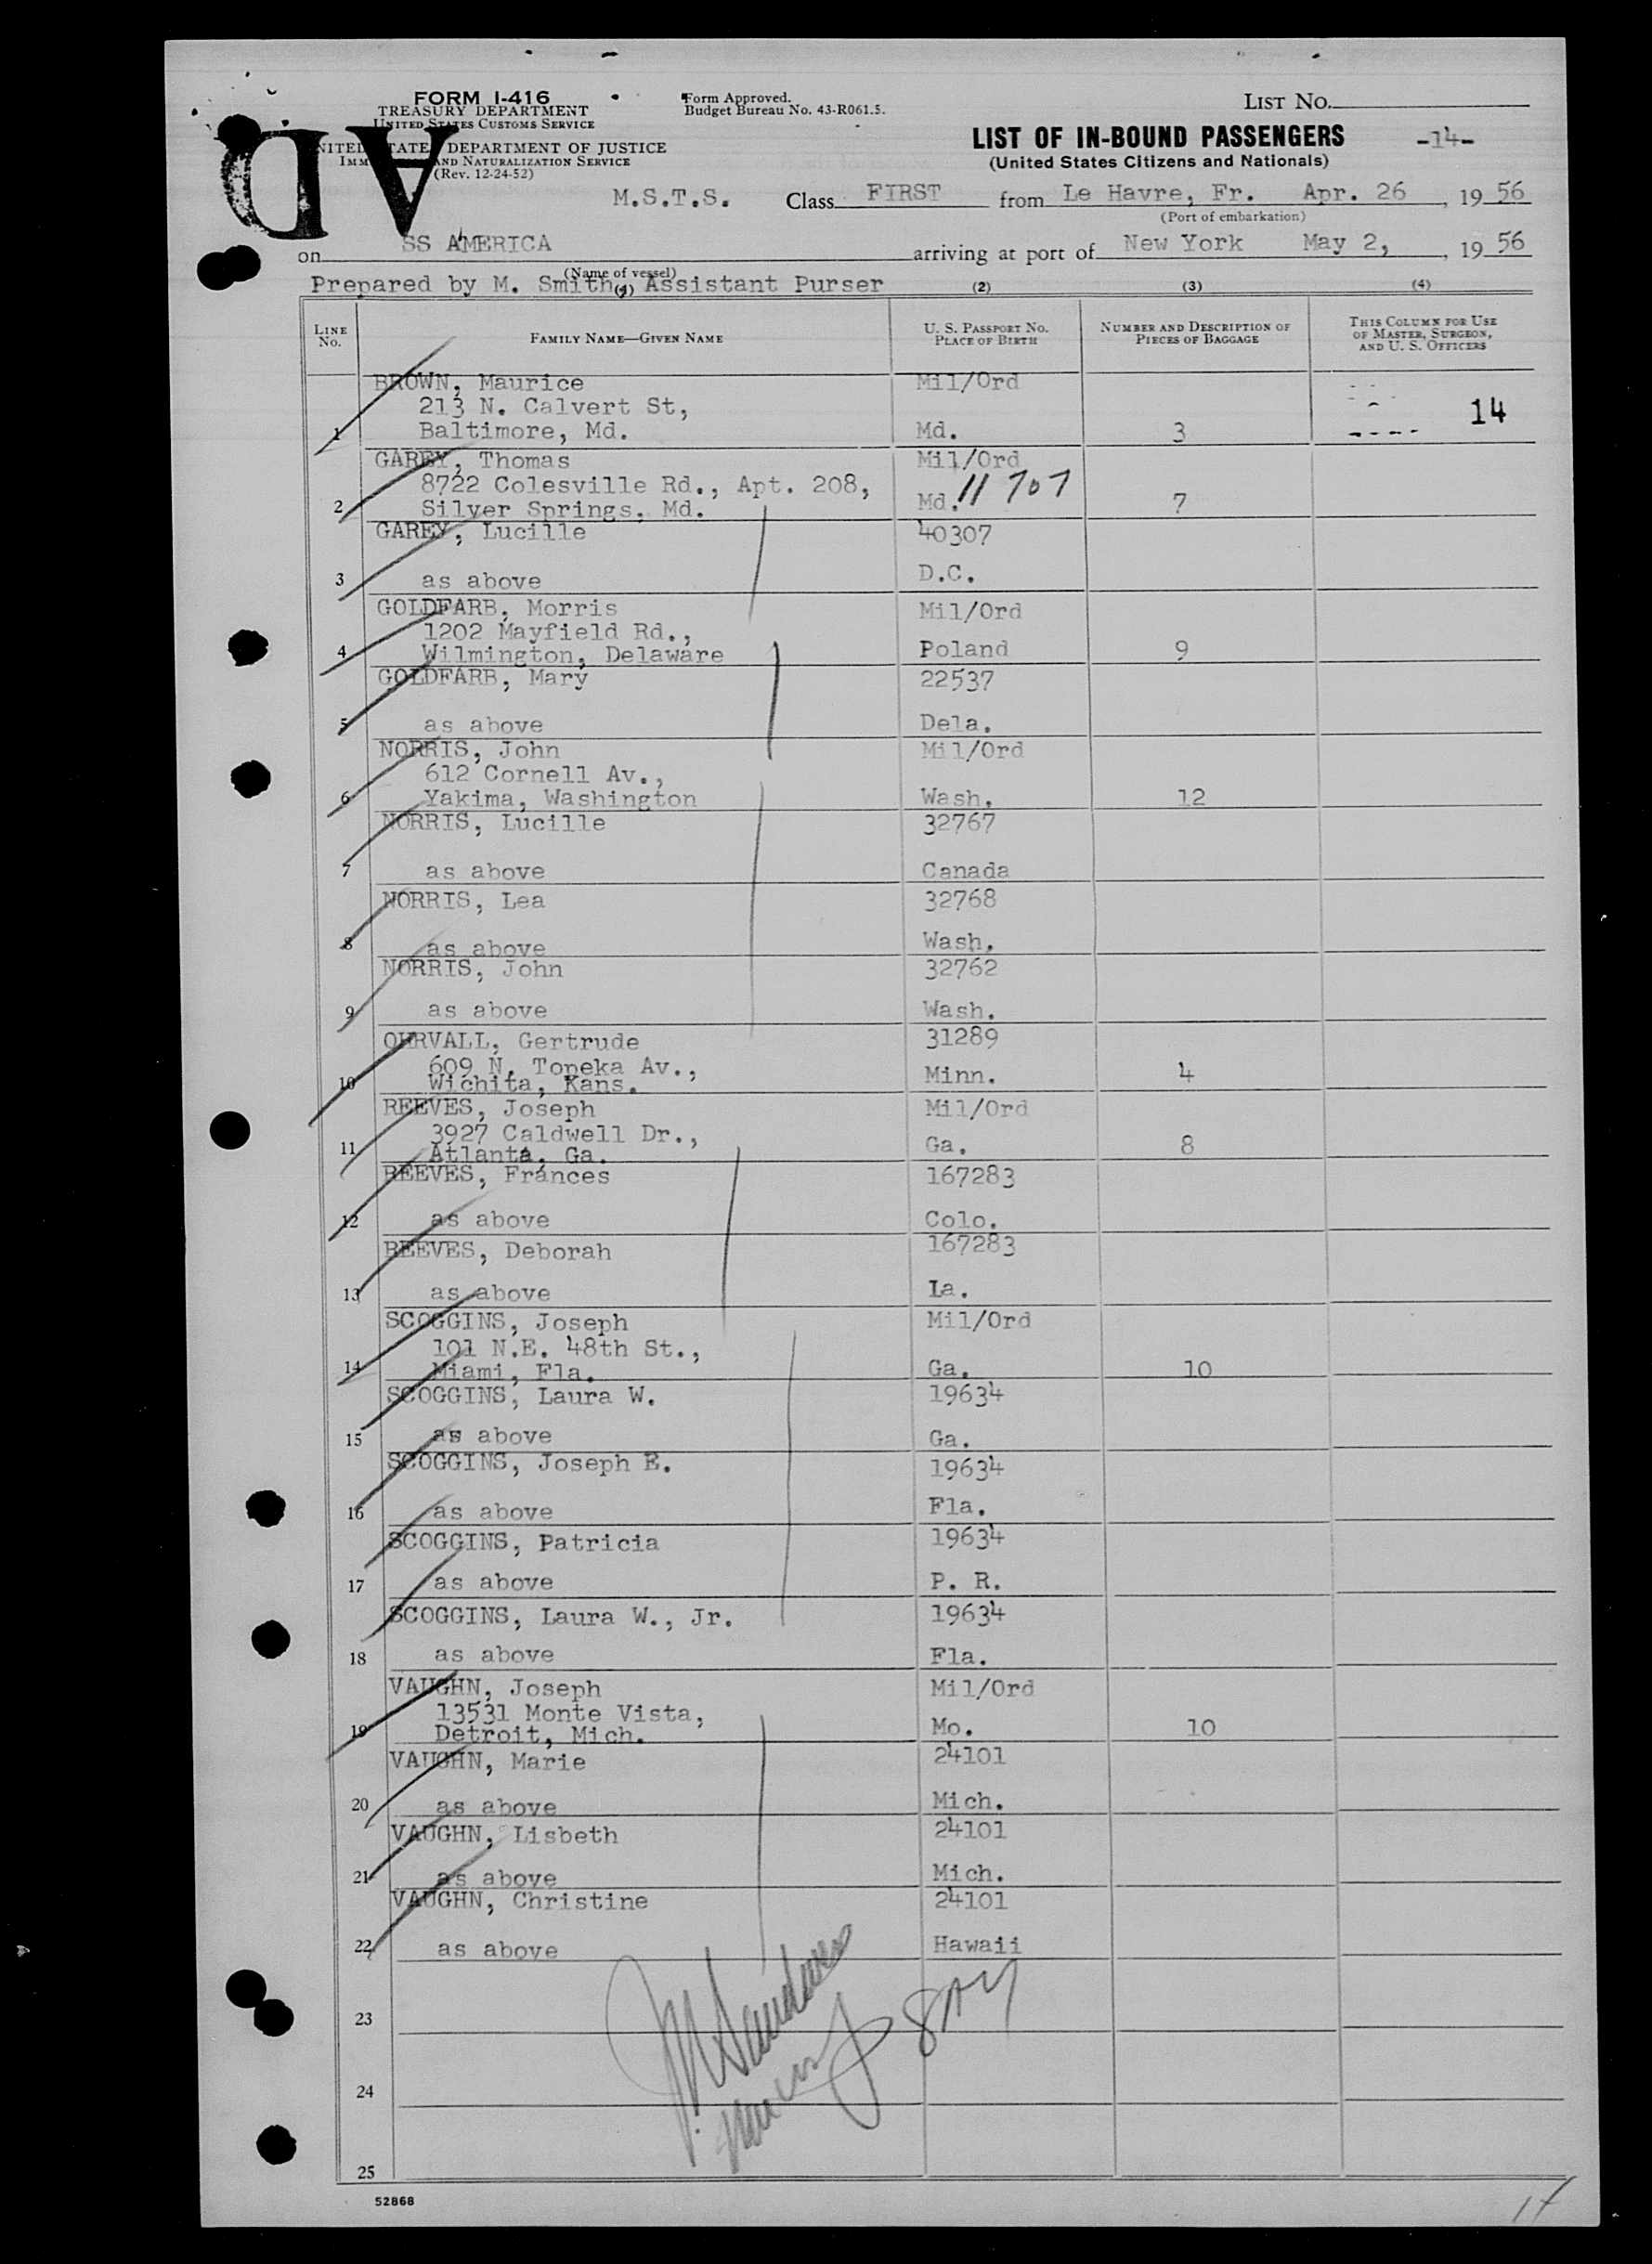 FORM I-416
TREASURY DEPARTMENT
UNITED STATES CUSTOMS SERVICE
DEPARTMENT OF JUSTICE
AND NATURALIZATION SERVICE
(Rev. 12-24-52)
AD
Form Approved.
Budget Bureau No. 43-R061.5.
LIST NO.
LIST OF IN-BOUND PASSENGERS -14-
(United States Citizens and Nationals)
M.S.T.S. Class FIRST from Le Havre, Fr. Apr. 26, 1956
(Port of embarkation)
on SS AMERICA arriving at port of New York May 2, 1956
(Name of vessel)
Prepared by M. Smith, Assistant Purser (2) (3) (4)
LINE NO. FAMILY NAME—GIVEN NAME U. S. PASSPORT NO. PLACE OF BIRTH NUMBER AND DESCRIPTION OF PIECES OF BAGGAGE THIS COLUMN FOR USE OF MASTER, SURGEON, AND U. S. OFFICERS
BROWN, Maurice Mil/Ord
213 N. Calvert St, 14
1 Baltimore, Md. Md. 3
GAREY, Thomas Mil/Ord
8722 Colesville Rd., Apt. 208, 11707
2 Silver Springs, Md. Md. 7
GAREY, Lucille 40307
3 as above D.C.
GOLDFARB, Morris Mil/Ord
1202 Mayfield Rd.,
4 Wilmington, Delaware Poland 9
GOLDFARB, Mary 22537
5 as above Dela.
NORRIS, John Mil/Ord
612 Cornell Av.,
6 Yakima, Washington Wash. 12
NORRIS, Lucille 32767
7 as above Canada
NORRIS, Lea 32768
8 as above Wash.
NORRIS, John 32762
9 as above Wash.
OHRVALL, Gertrude 31289
609 N. Topeka Av.,
10 Wichita, Kans. Minn. 4
REEVES, Joseph Mil/Ord
3927 Caldwell Dr.,
11 Atlanta, Ga. Ga. 8
REEVES, Frances 167283
12 as above Colo.
REEVES, Deborah 167283
13 as above La.
SCOGGINS, Joseph Mil/Ord
101 N.E. 48th St.,
14 Miami, Fla. Ga. 10
SCOGGINS, Laura W. 19634
15 as above Ga.
SCOGGINS, Joseph E. 19634
16 as above Fla.
SCOGGINS, Patricia 19634
17 as above P. R.
SCOGGINS, Laura W., Jr. 19634
18 as above Fla.
VAUGHN, Joseph Mil/Ord
13531 Monte Vista,
19 Detroit, Mich. Mo. 10
VAUGHN, Marie 24101
20 as above Mich.
VAUGHN, Lisbeth 24101
21 as above Mich.
VAUGHN, Christine 24101
22 as above Hawaii
23
24
25
52868